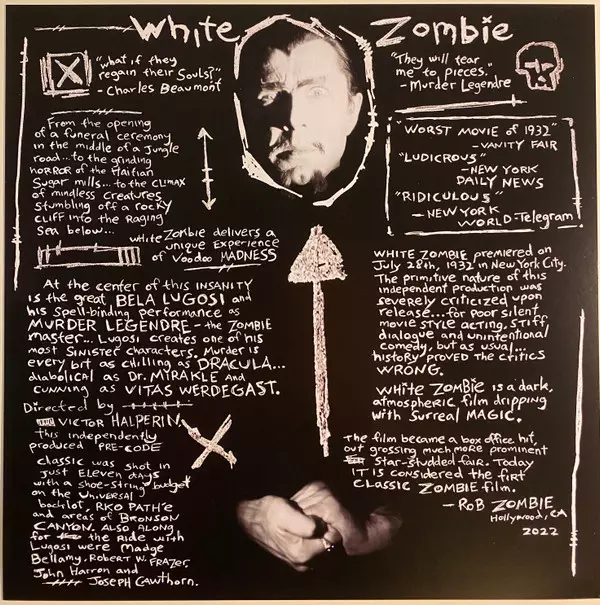 White Zombie
"what if they
regain their Souls?"
- Charles Beaumont
"They will tear
me to pieces."
- Murder Legendre
From the opening
of a funeral ceremony
in the middle of a Jungle
road...to the grinding
HORROR of the Haitian
Sugar mills...to the CLIMAX
of mindless creatures
stumbling off a rocky
CLIFF into the Raging
Sea below...
white Zombie delivers a
unique Experience
of Voodoo MADNESS
At the center of this INSANITY
is the great BELA LUGOSI and
his spell-binding performance as
MURDER LEGENDRE - the ZOMBIE
master... Lugosi creates one of his
most Sinister characters. Murder is
every bit as chilling as DRACULA...
diabolical as Dr. MIRAKLE and
cunning as VITAS WERDEGAST.
Directed by
VICTOR HALPERIN
this independently
produced PRE-CODE
classic was shot in
just Eleven days
with a shoe-string budget
on the Universal
backlot, RKO PATH'e
and areas of BRONSON
CANYON. Also along
for the Ride with
Lugosi were Madge
Bellamy, Robert W. Frazer,
John Harron and
Joseph Cawthorn.
"WORST MOVIE OF 1932"
- VANITY FAIR
"LUDICROUS"
- NEW YORK
DAILY NEWS
"RIDICULOUS"
- NEW YORK
WORLD-Telegram
WHITE ZOMBIE premiered on
July 28th, 1932 in New York City.
The primitive nature of this
independent production was
severely criticized upon
release...for poor silent
movie style acting, stiff
dialogue and unintentional
comedy, but as usual...
history proved the critics
WRONG.
WHITE ZOMBIE is a dark,
atmospheric film dripping
with Surreal MAGIC.
The film became a box office hit,
out grossing much more prominent
Star-studded fair. Today
IT is considered the firt
CLASSIC ZOMBIE film.
- ROB ZOMBIE
Hollywood, CA
2022